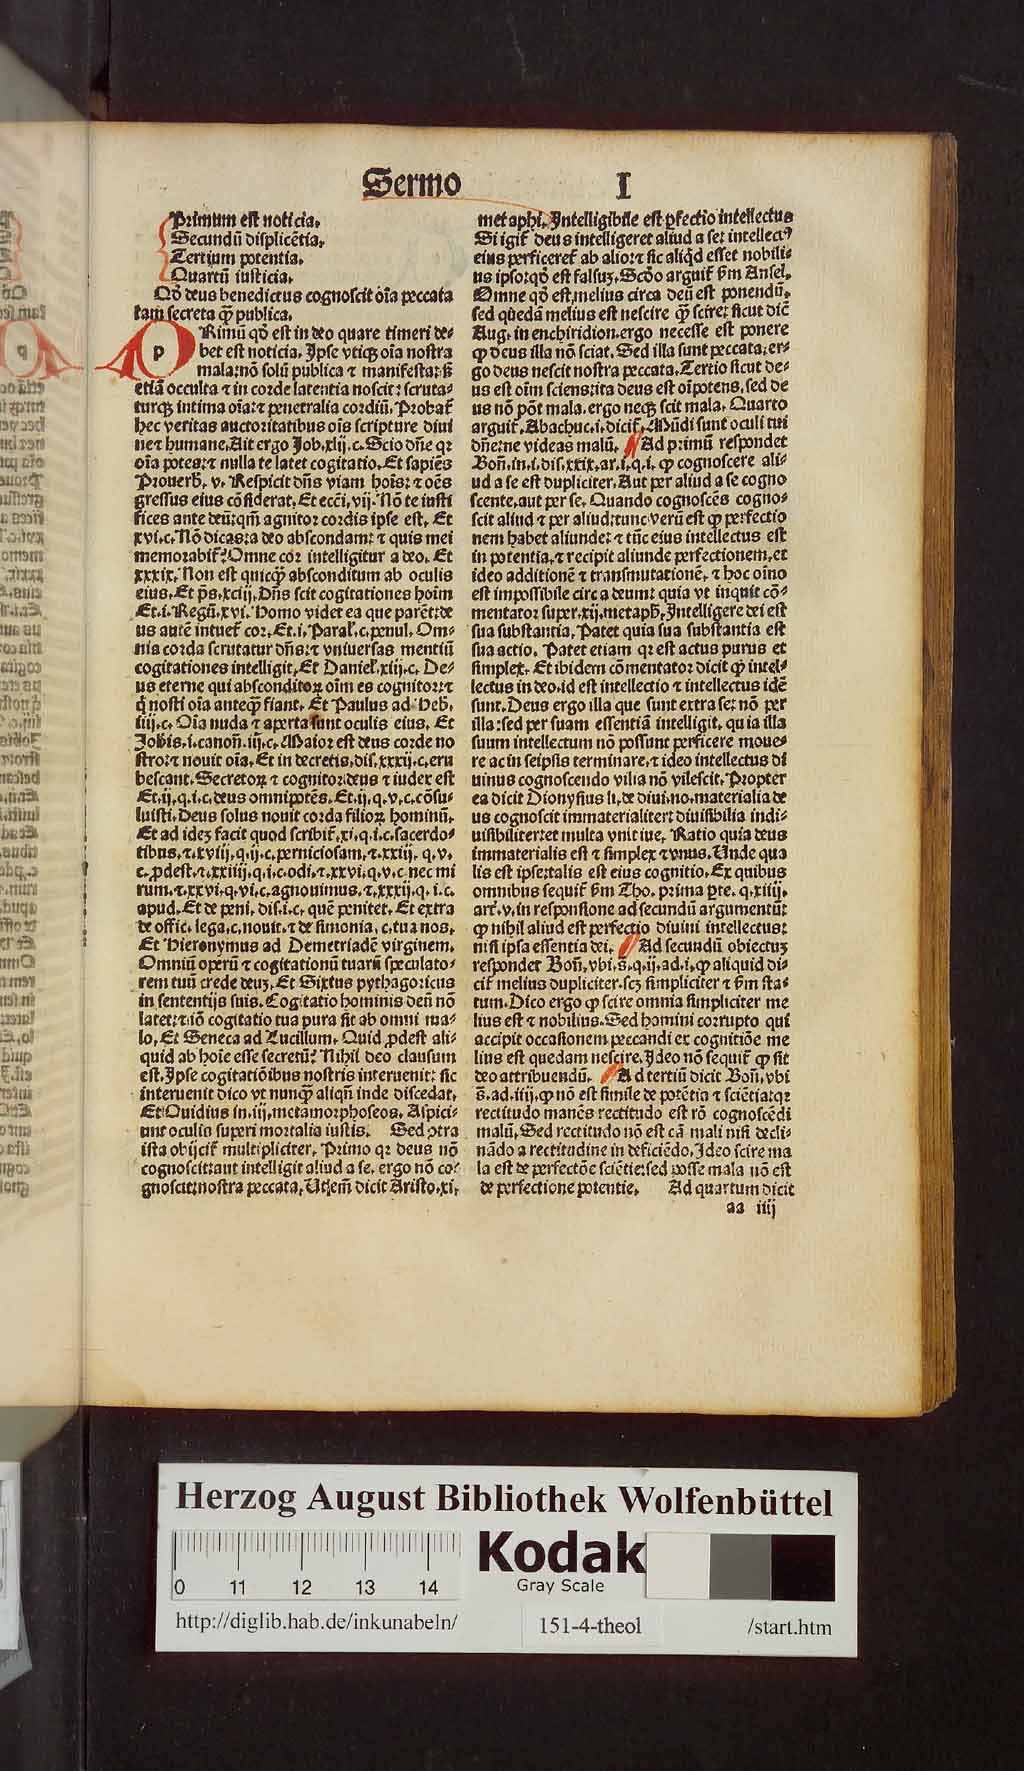 Sermo I
Primum est noticia.
Secundũ displicẽtia.
Tertium potentia.
Quartũ iusticia.
Qõ deus benedictus cognoscit oĩa peccata
tam secreta q̃ publica.
pRimũ qõ est in deo quare timeri de⸗
bet est noticia. Ipse vtiqꝫ oĩa nostra
mala: nõ solũ publica ⁊ manifesta: sꝫ
etiã occulta ⁊ in corde latentia noscit: scruta⸗
turqꝫ intima oĩa: ⁊ penetralia cordiũ. Probat̃
hec veritas auctoritatibus oĩs scripture diui
ne: ⁊ humane. Ait ergo Job. xlij. c. Scio dñe qꝛ
oĩa potes: ⁊ nulla te latet cogitatio. Et sapiẽs
Prouerb̃. v. Respicit dñs viam hoĩs: ⁊ oẽs
gressus eius cõsiderat. Et ecci. vij. Nõ te iusti
fices ante deũ: qm̃ agnitor cordis ipse est. Et
xvi. c. Nõ dicas: a deo abscondam: ⁊ quis mei
memorabit̃? Omne cor intelligitur a deo. Et
xxxix. Non est quicq̃ absconditum ab oculis
eius. Et p̃s. xciij. Dñs scit cogitationes hoĩm
Et. i. Regũ. xvi. Homo videt ea que parẽt: de⸗
us autẽ intuet̃ cor. Et. i. Paral̃. c. penul. Om⸗
nia corda scrutatur dñs: ⁊ vniuersas mentiũ
cogitationes intelligit. Et Daniel̃. xiij. c. De⸗
us eterne qui absconditoꝝ oĩm es cognitor: ⁊
q̃ nosti oĩa anteq̃ fiant. Et Paulus ad Heb.
iiij. c. Oĩa nuda ⁊ aperta sunt oculis eius. Et
Johis. i. canoñ. iij. c. Maior est deus corde no
stro: ⁊ nouit oĩa. Et in decretis. dis. xxxij. c. eru
bescant. Secretoꝝ ⁊ cognitor: deus ⁊ iudex est
Et. ij. q. i. c. deus omnipotẽs. Et. ij. q. v. c. cõsu⸗
luisti. Deus solus nouit corda filioꝝ hominũ.
Et ad ideꝫ facit quod scribit̃. xi. q. i. c. sacerdo⸗
tibus. ⁊. xviij. q. ij. c. perniciosam. ⁊. xxiij. q. v.
c. ꝓdest. ⁊. xxiiij. q. i. c. odi. ⁊. xxvi. q. v. c nec mi
rum. ⁊. xxvi. q. vi. c. agnouimus. ⁊. xxxij. q. i. c.
apud. Et de peni. dis. i. c. quẽ penitet. Et extra
de offic. lega. c. nouit. ⁊ de simonia. c. tua nos.
Et Hieronymus ad Demetriadẽ virginem.
Omniũ operũ ⁊ cogitationũ tuarũ speculato⸗
rem tuũ crede deuꝫ. Et Sixtus pythagoricus
in sententijs suis. Cogitatio hominis deũ nõ
latet: ⁊ iõ cogitatio tua pura sit ab omni ma⸗
lo. Et Seneca ad Lucillum. Quid ꝓdest ali⸗
quid ab hoĩe esse secretũ? Nihil deo clausum
est. Ipse cogitatiõibus nostris interuenit: sic
interuenit dico vt nunq̃ aliqñ inde discedat.
Et Ouidius in. iij. metamorphoseos. Aspici⸗
unt oculis superi mortalia iustis. Sed ꝯtra
ista obijcit̃ multipliciter. Primo qꝛ deus nõ
cognoscit: aut intelligit aliud a se. ergo nõ co⸗
gnoscit: nostra peccata. Utlem̃ dicit Aristo. xi.
metaphi. Intelligibile est ꝑfectio intellectus
Si igit̃ deus intelligeret aliud a se: intellectꝰ
eius perficeret̃ ab alio: ⁊ sic aliq̃d esset nobili⸗
us ipso: qõ est falsuꝫ. Scðo arguit̃ ẜm Ansel.
Omne qõ est melius circa deũ est ponendũ.
sed quẽdã melius est nescire q̃ scire: sicut dic̃
Aug. in enchiridion. ergo necesse est ponere
ꝙ deus illa nõ sciat. Sed illa sunt peccata: er⸗
go deus nescit nostra peccata. Tertio sicut de⸗
us est oĩm sciens: ita deus est oĩpotens. sed de
us nõ põt mala. ergo necqꝫ scit mala. Quarto
arguit̃. Abachuc. i. dicit̃. Mũdi sunt oculi tui
dñe: ne videas malũ. Ad primũ respondet
Boñ. in. i. dis. xxix. ar. i. q. i. ꝙ cognoscere ali⸗
ud a se est dupliciter. Aut per aliud a se cogno
scente. aut per se. Quando cognoscẽs cogno⸗
scit aliud ⁊ per aliud: tunc verũ est ꝙ perfectio
nem habet aliunde: ⁊ tũc eius intellectus est
in potentia. ⁊ recipit aliunde perfectionem. et
ideo additionẽ ⁊ transmutationẽ. ⁊ hoc oĩno
est impossibile circa deum: quia vt inquit cõ⸗
mentator super. xij. metapħ. Intelligere dei est
sua substantia. Patet quia sua substantia est
sua actio. Patet etiam qꝛ est actus purus et
simplex. Et ibidem cõmentator dicit ꝙ intel⸗
lectus in deo. id est intellectio ⁊ intellectus idẽ
sunt. Deus ergo illa que sunt extra se: nõ per
illa: sed per suam essentiã intelligit. quia illa
suum intellectum nõ possunt perficere moue⸗
re ac in seipsis terminare. ⁊ ideo intellectus di
uinus cognoscendo vilia nõ vilescit. Propter
ea dicit Dionysius li. de diui. no. materialia de
us cognoscit immaterialiter: diuisibilia indi⸗
uisibiliter: et multa vnitiue. Ratio quia deus
immaterialis est ⁊ simplex ⁊ vnus. Unde qua
lis est ipse: talis est eius cognitio. Ex quibus
omnibus sequit̃ ẜm Tho. prima ꝑte. q. xiiij.
art̃. v. in responsione ad secundũ argumentũ:
ꝙ nihil aliud est perfectio diuini intellectus:
nisi ipsa essentia dei. Ad secundũ obiectuꝫ
respondet Boñ. vbi. s̃. q. ij. ad. i. ꝙ aliquid di⸗
cit̃ melius dupliciter. scꝫ simpliciter ⁊ ẜm sta⸗
tum. Dico ergo ꝙ scire omnia simpliciter me
lius est ⁊ nobilius. Sed homini corrupto qui
accipit occasionem peccandi ex cognitiõe me
lius est quedam nescire. Ideo nõ sequit̃ ꝙ sit
deo attribuendũ. Ad tertiũ dicit Boñ. vbi
s̃. ad. iiij. ꝙ nõ est simile de potẽtia ⁊ sciẽtia: qꝛ
rectitudo manẽs rectitudo est rõ cognoscẽdi
malũ. Sed rectitudo nõ est cã mali nisi decli⸗
nãdo a rectitudine in deficiẽdo. Ideo scire ma
la est de perfectõe sciẽtie: sed posse mala nõ est
de perfectione potentie. Ad quartum dicit
aa iiij
Herzog August Bibliothek Wolfenbüttel
0 11 12 13 14
Kodak
Gray Scale
http://diglib.hab.de/inkunabeln/ 151-4-theol /start.htm